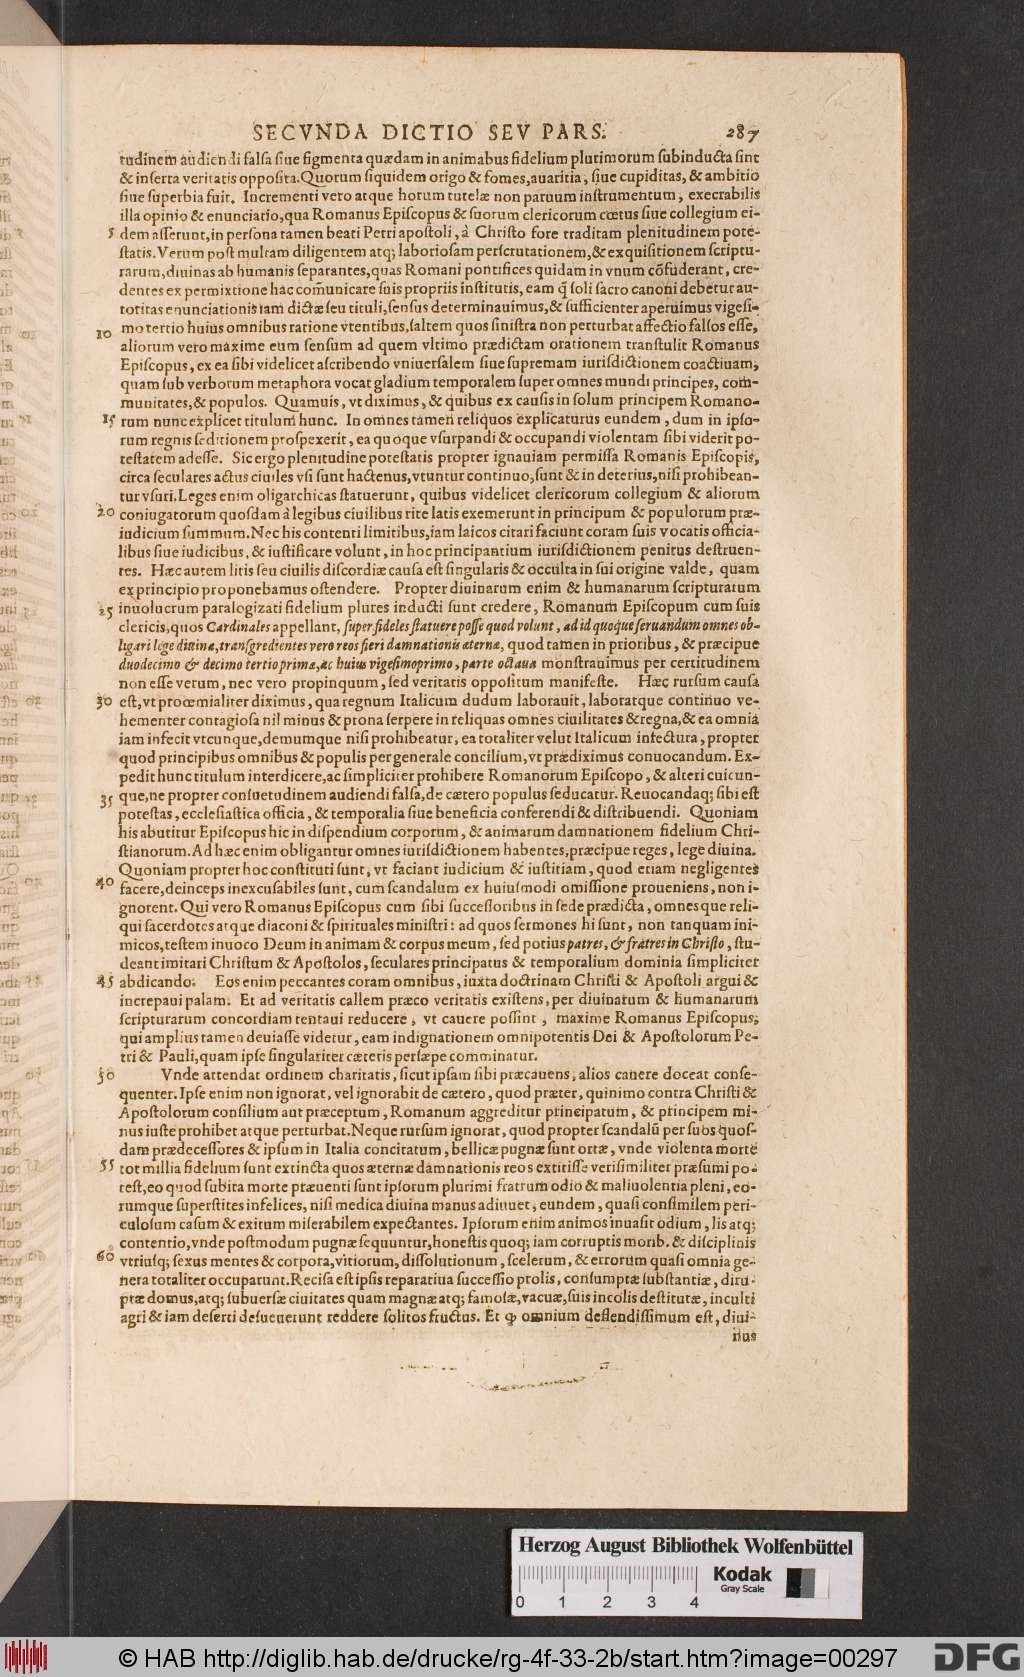 SECVNDA DICTIO SEV PARS. 287
tudinem audiendi falsa siue figmenta quædam in animabus fidelium plurimorum subinducta sint
& inserta veritatis opposita. Quorum siquidem origo & fomes, auaritia, siue cupiditas, & ambitio
siue superbia fuit. Incrementi vero atque horum tutelæ non paruum instrumentum, execrabilis
illa opinio & enunciatio, qua Romanus Episcopus & suorum clericorum cœtus siue collegium ei-
5 dem asserunt, in persona tamen beati Petri apostoli, à Christo fore traditam plenitudinem pote-
statis. Verum post multam diligentem atq; laboriosam perscrutationem, & exquisitionem scriptu-
rarum, diuinas ab humanis separantes, quas Romani pontifices quidam in vnum cõfuderant, cre-
dentes ex permixtione hac com̃unicare suis propriis institutis, eam q̃ soli sacro canoni debetur au-
toritas enunciationis iam dictæ seu tituli, sensus determinauimus, & sufficienter aperuimus vigesi-
10 mo tertio huius omnibus ratione vtentibus, saltem quos sinistra non perturbat affectio falsos esse,
aliorum vero maxime eum sensum ad quem vltimo prædictam orationem transtulit Romanus
Episcopus, ex ea sibi videlicet ascribendo vniuersalem siue supremam iurisdictionem coactiuam,
quam sub verborum metaphora vocat gladium temporalem super omnes mundi principes, com-
munitates, & populos. Quamuis, vt diximus, & quibus ex causis in solum principem Romano-
15 rum nunc explicet titulum hunc. In omnes tamen reliquos explicaturus eundem, dum in ipso-
rum regnis seditionem prospexerit, ea quoque vsurpandi & occupandi violentam sibi viderit po-
testatem adesse. Sic ergo plenitudine potestatis propter ignauiam permissa Romanis Episcopis,
circa seculares actus ciuiles vsi sunt hactenus, vtuntur continuo, sunt & in deterius, nisi prohibean-
tur vsuri. Leges enim oligarchicas statuerunt, quibus videlicet clericorum collegium & aliorum
20 coniugatorum quosdam à legibus ciuilibus rite latis exemerunt in principum & populorum præ-
iudicium summum. Nec his contenti limitibus, iam laicos citari faciunt coram suis vocatis officia-
libus siue iudicibus, & iustificare volunt, in hoc principantium iurisdictionem penitus destruen-
tes. Hæc autem litis seu ciuilis discordiæ causa est singularis & occulta in sui origine valde, quam
ex principio proponebamus ostendere. Propter diuinarum enim & humanarum scripturarum
25 inuolucrum paralogizati fidelium plures inducti sunt credere, Romanum Episcopum cum suis
clericis, quos Cardinales appellant, super fideles statuere posse quod volunt, ad id quoque seruandum omnes ob-
ligari lege diuina, transgredientes vero reos fieri damnationis æternæ, quod tamen in prioribus, & præcipue
duodecimo & decimotertio primæ, ac huius vigesimoprimo, parte octaua monstrauimus per certitudinem
non esse verum, nec vero propinquum, sed veritatis oppositum manifeste. Hæc rursum causa
30 est, vt proœmialiter diximus, qua regnum Italicum dudum laborauit, laboratque continuo ve-
hementer contagiosa nil minus & prona serpere in reliquas omnes ciuilitates & regna, & ea omnia
iam infecit vtcunque, demumque nisi prohibeatur, ea totaliter velut Italicum infectura, propter
quod principibus omnibus & populis per generale concilium, vt prædiximus conuocandum. Ex-
pedit hunc titulum interdicere, ac simpliciter prohibere Romanorum Episcopo, & alteri cuicun-
35 que, ne propter consuetudinem audiendi falsa, de cætero populus seducatur. Reuocandaq; sibi est
potestas, ecclesiastica officia, & temporalia siue beneficia conferendi & distribuendi. Quoniam
his abutitur Episcopus hic in dispendium corporum, & animarum damnationem fidelium Chri-
stianorum. Ad hæc enim obligantur omnes iurisdictionem habentes, præcipue reges, lege diuina.
Quoniam propter hoc constituti sunt, vt faciant iudicium & iustitiam, quod etiam negligentes
40 facere, deinceps inexcusabiles sunt, cum scandalum ex huiusmodi omissione proueniens, non i-
gnorent. Qui vero Romanus Episcopus cum sibi successoribus in sede prædicta, omnesque reli-
qui sacerdotes atque diaconi & spirituales ministri: ad quos sermones hi sunt, non tanquam ini-
micos, testem inuoco Deum in animam & corpus meum, sed potius patres, & fratres in Christo, stu-
deant imitari Christum & Apostolos, seculares principatus & temporalium dominia simpliciter
45 abdicando. Eos enim peccantes coram omnibus, iuxta doctrinam Christi & Apostoli argui &
increpaui palam. Et ad veritatis callem præco veritatis existens, per diuinarum & humanarum
scripturarum concordiam tentaui reducere, vt cauere possint, maxime Romanus Episcopus,
qui amplius tamen deuiasse videtur, eam indignationem omnipotentis Dei & Apostolorum Pe-
tri & Pauli, quam ipse singulariter cæteris persæpe comminatur.
50 Vnde attendat ordinem charitatis, sicut ipsam sibi præcauens, alios cauere doceat conse-
quenter. Ipse enim non ignorat, vel ignorabit de cætero, quod præter, quinimo contra Christi &
Apostolorum consilium aut præceptum, Romanum aggreditur principatum, & principem mi-
nus iuste prohibet atque perturbat. Neque rursum ignorat, quod propter scandalũ per suos quos-
dam prædecessores & ipsum in Italia concitatum, bellicæ pugnæ sunt ortæ, vnde violenta morte
55 tot millia fidelium sunt extincta quos æternæ damnationis reos extitisse verisimiliter præsumi po-
test, eo quod subita morte præuenti sunt ipsorum plurimi fratrum odio & maliuolentia pleni, eo-
rumque superstites infelices, nisi medica diuina manus adiuuet, eundem, quasi consimilem peri-
culosum casum & exitum miserabilem expectantes. Ipsorum enim animos inuasit odium, lis atq;
contentio, vnde postmodum pugnæ sequuntur, honestis quoq; iam corruptis morib. & disciplinis
60 vtriusq; sexus mentes & corpora, vitiorum, dissolutionum, scelerum, & errorum quasi omnia ge-
nera totaliter occuparunt. Recisa est ipsis reparatiua successio prolis, consumptæ substantiæ, diru-
ptæ domus, atq; subuersæ ciuitates quam magnæ atq; famosæ, vacuæ, suis incolis destitutæ, inculti
agri & iam deserti desueuerunt reddere solitos fructus. Et ꝙ omnium deflendissimum est, diui-
nus
Herzog August Bibliothek Wolfenbüttel
Kodak
Gray Scale
0 1 2 3 4
© HAB http://diglib.hab.de/drucke/rg-4f-33-2b/start.htm?image=00297
DFG